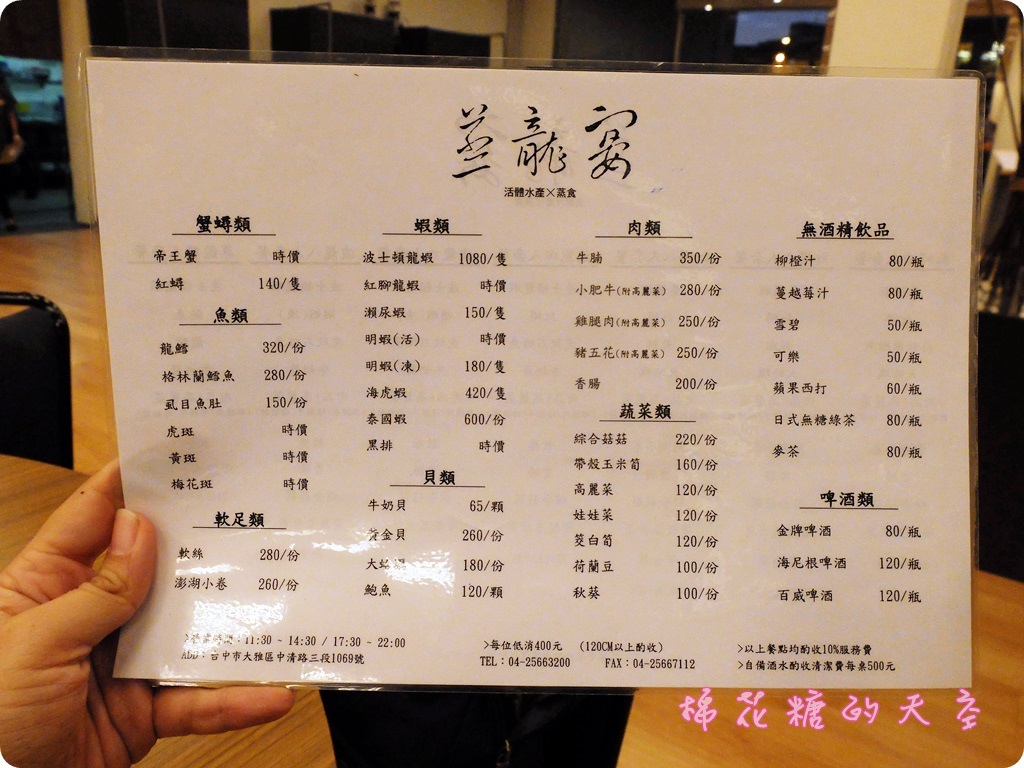 蒸龍宴
活體水產×蒸食
蟹蟳類
帝王蟹 時價
紅蟳 140/隻
魚類
龍鱈 320/份
格林蘭鱈魚 280/份
虱目魚肚 150/份
虎斑 時價
黃斑 時價
梅花斑 時價
軟足類
軟絲 280/份
澎湖小卷 260/份
蝦類
波士頓龍蝦 1080/隻
紅腳龍蝦 時價
瀨尿蝦 150/隻
明蝦(活) 時價
明蝦(凍) 180/隻
海虎蝦 420/隻
泰國蝦 600/份
黑排 時價
貝類
牛奶貝 65/顆
黃金貝 260/份
大 180/份
鮑魚 120/顆
肉類
牛腩 350/份
小肥牛(附高麗菜) 280/份
雞腿肉(附高麗菜) 250/份
豬五花(附高麗菜) 250/份
香腸 200/份
蔬菜類
綜合菇菇 220/份
帶殼玉米筍 160/份
高麗菜 120/份
娃娃菜 120/份
筊白筍 120/份
荷蘭豆 100/份
秋葵 100/份
無酒精飲品
柳橙汁 80/瓶
蔓越莓汁 80/瓶
雪碧 50/瓶
可樂 50/瓶
蘋果西打 60/瓶
日式無糖綠茶 80/瓶
麥茶 80/瓶
啤酒類
金牌啤酒 80/瓶
海尼根啤酒 120/瓶
百威啤酒 120/瓶
>營業時間：11:30 ~ 14:30 / 17:30 ~ 22:00
ADD：台中市大雅區中清路三段1069號
>每位低消400元 (120CM以上酌收)
TEL：04-25663200 FAX：04-25667112
>以上餐點均酌收10%服務費
>自備酒水酌收清潔費每桌500元
棉花糖的天空